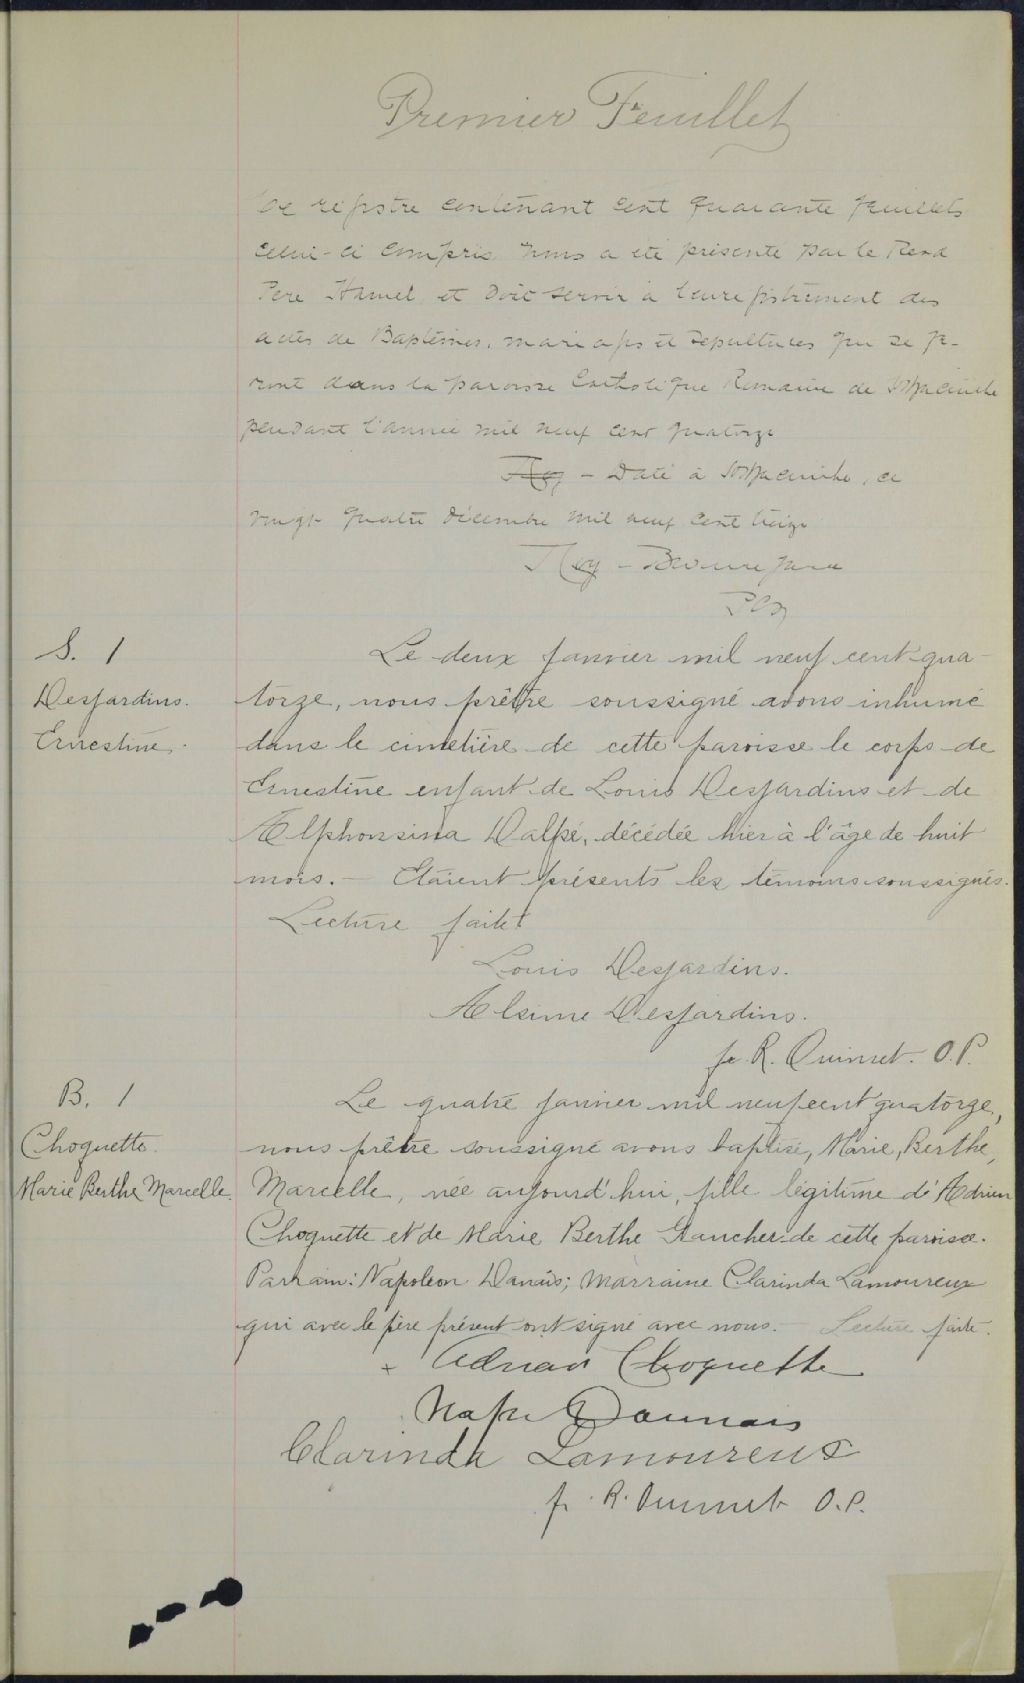 Premier Feuillet
Ce registre contenant cent quarante feuillets
celui-ci compris nous a été présenté par le Revd
Père Hamel, et doit servir à l'enregistrement des
actes de Baptêmes, mariages et sepultures qui se fe-
ront dans la paroisse Catholique Romaine de St Hyacinthe
pendant l'année mil neuf cent quatorze
Daté à St Hyacinthe, ce
vingt quatre décembre mil neuf cent treize
Roy - Beauregard
S. 1
Desjardins.
Ernestine.
Le deux janvier mil neuf cent qua-
torze, nous prêtre soussigné avons inhumé
dans le cimetière de cette paroisse le corps de
Ernestine enfant de Louis Desjardins et de
Alphonsina Dalpé, décédée hier à l'âge de huit
mois. — Etaient présents les témoins soussignés.
Lecture faite
Louis Desjardins.
Alsime Desjardins.
fr. R. Quimet. O.P.
B. 1
Choquette.
Marie Berthe Marcelle.
Le quatre janvier mil neuf cent quatorze,
nous prêtre soussigné avons baptisé, Marie, Berthe,
Marcelle, née aujourd'hui, fille légitime d'Adrien
Choquette et de Marie Berthe de cette paroisse.
Parrain: Napoléon Danais; Marraine Clarinda Lamoureux
qui avec le père présent ont signé avec nous. — Lecture faite.
+ Adrian Choquette
Nap Daunais
Clarinda Lamoureux
fr. R. Ouimet O.P.